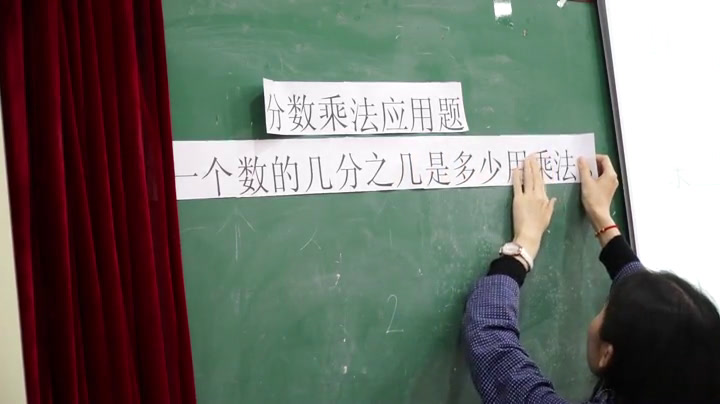 分数乘法应用题
一个数的几分之几是多少用乘法
2